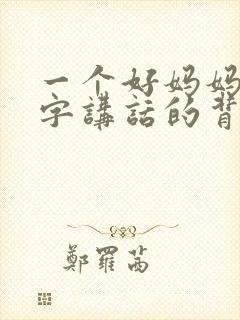 一个好妈妈
字講話的背
鄭羅茜